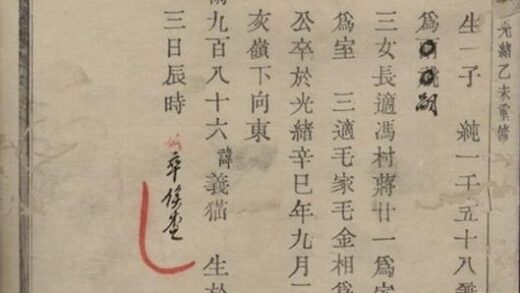 光緒乙未重修
生一子 純一千五十八
爲
三女長適馮村蔣廿一爲室
爲室 三適毛家毛金相爲
公卒於光緒辛巳年九月
亥嶺下向東
九百八十六 諱義猫 生於
三日辰時 卒俟查